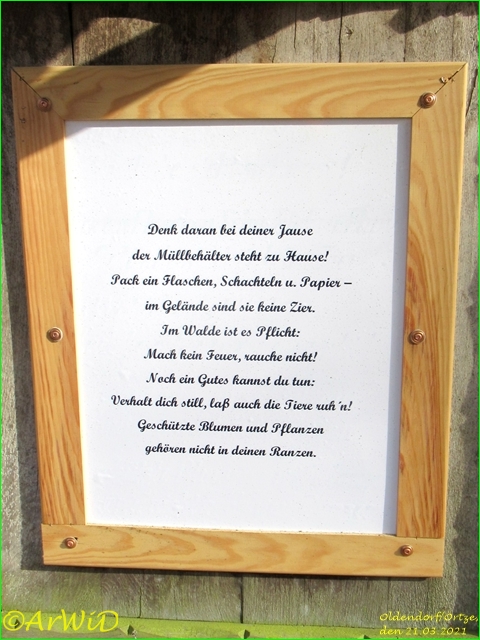 Denk daran bei deiner Jause
der Müllbehälter steht zu Hause!
Pack ein Flaschen, Schachteln u. Papier –
im Gelände sind sie keine Zier.
Im Walde ist es Pflicht:
Mach kein Feuer, rauche nicht!
Noch ein Gutes kannst du tun:
Verhalt dich still, laß auch die Tiere ruh´n!
Geschützte Blumen und Pflanzen
gehören nicht in deinen Ranzen.
©ArWiD
Oldendorf/Örtze,
den 21.03.2021